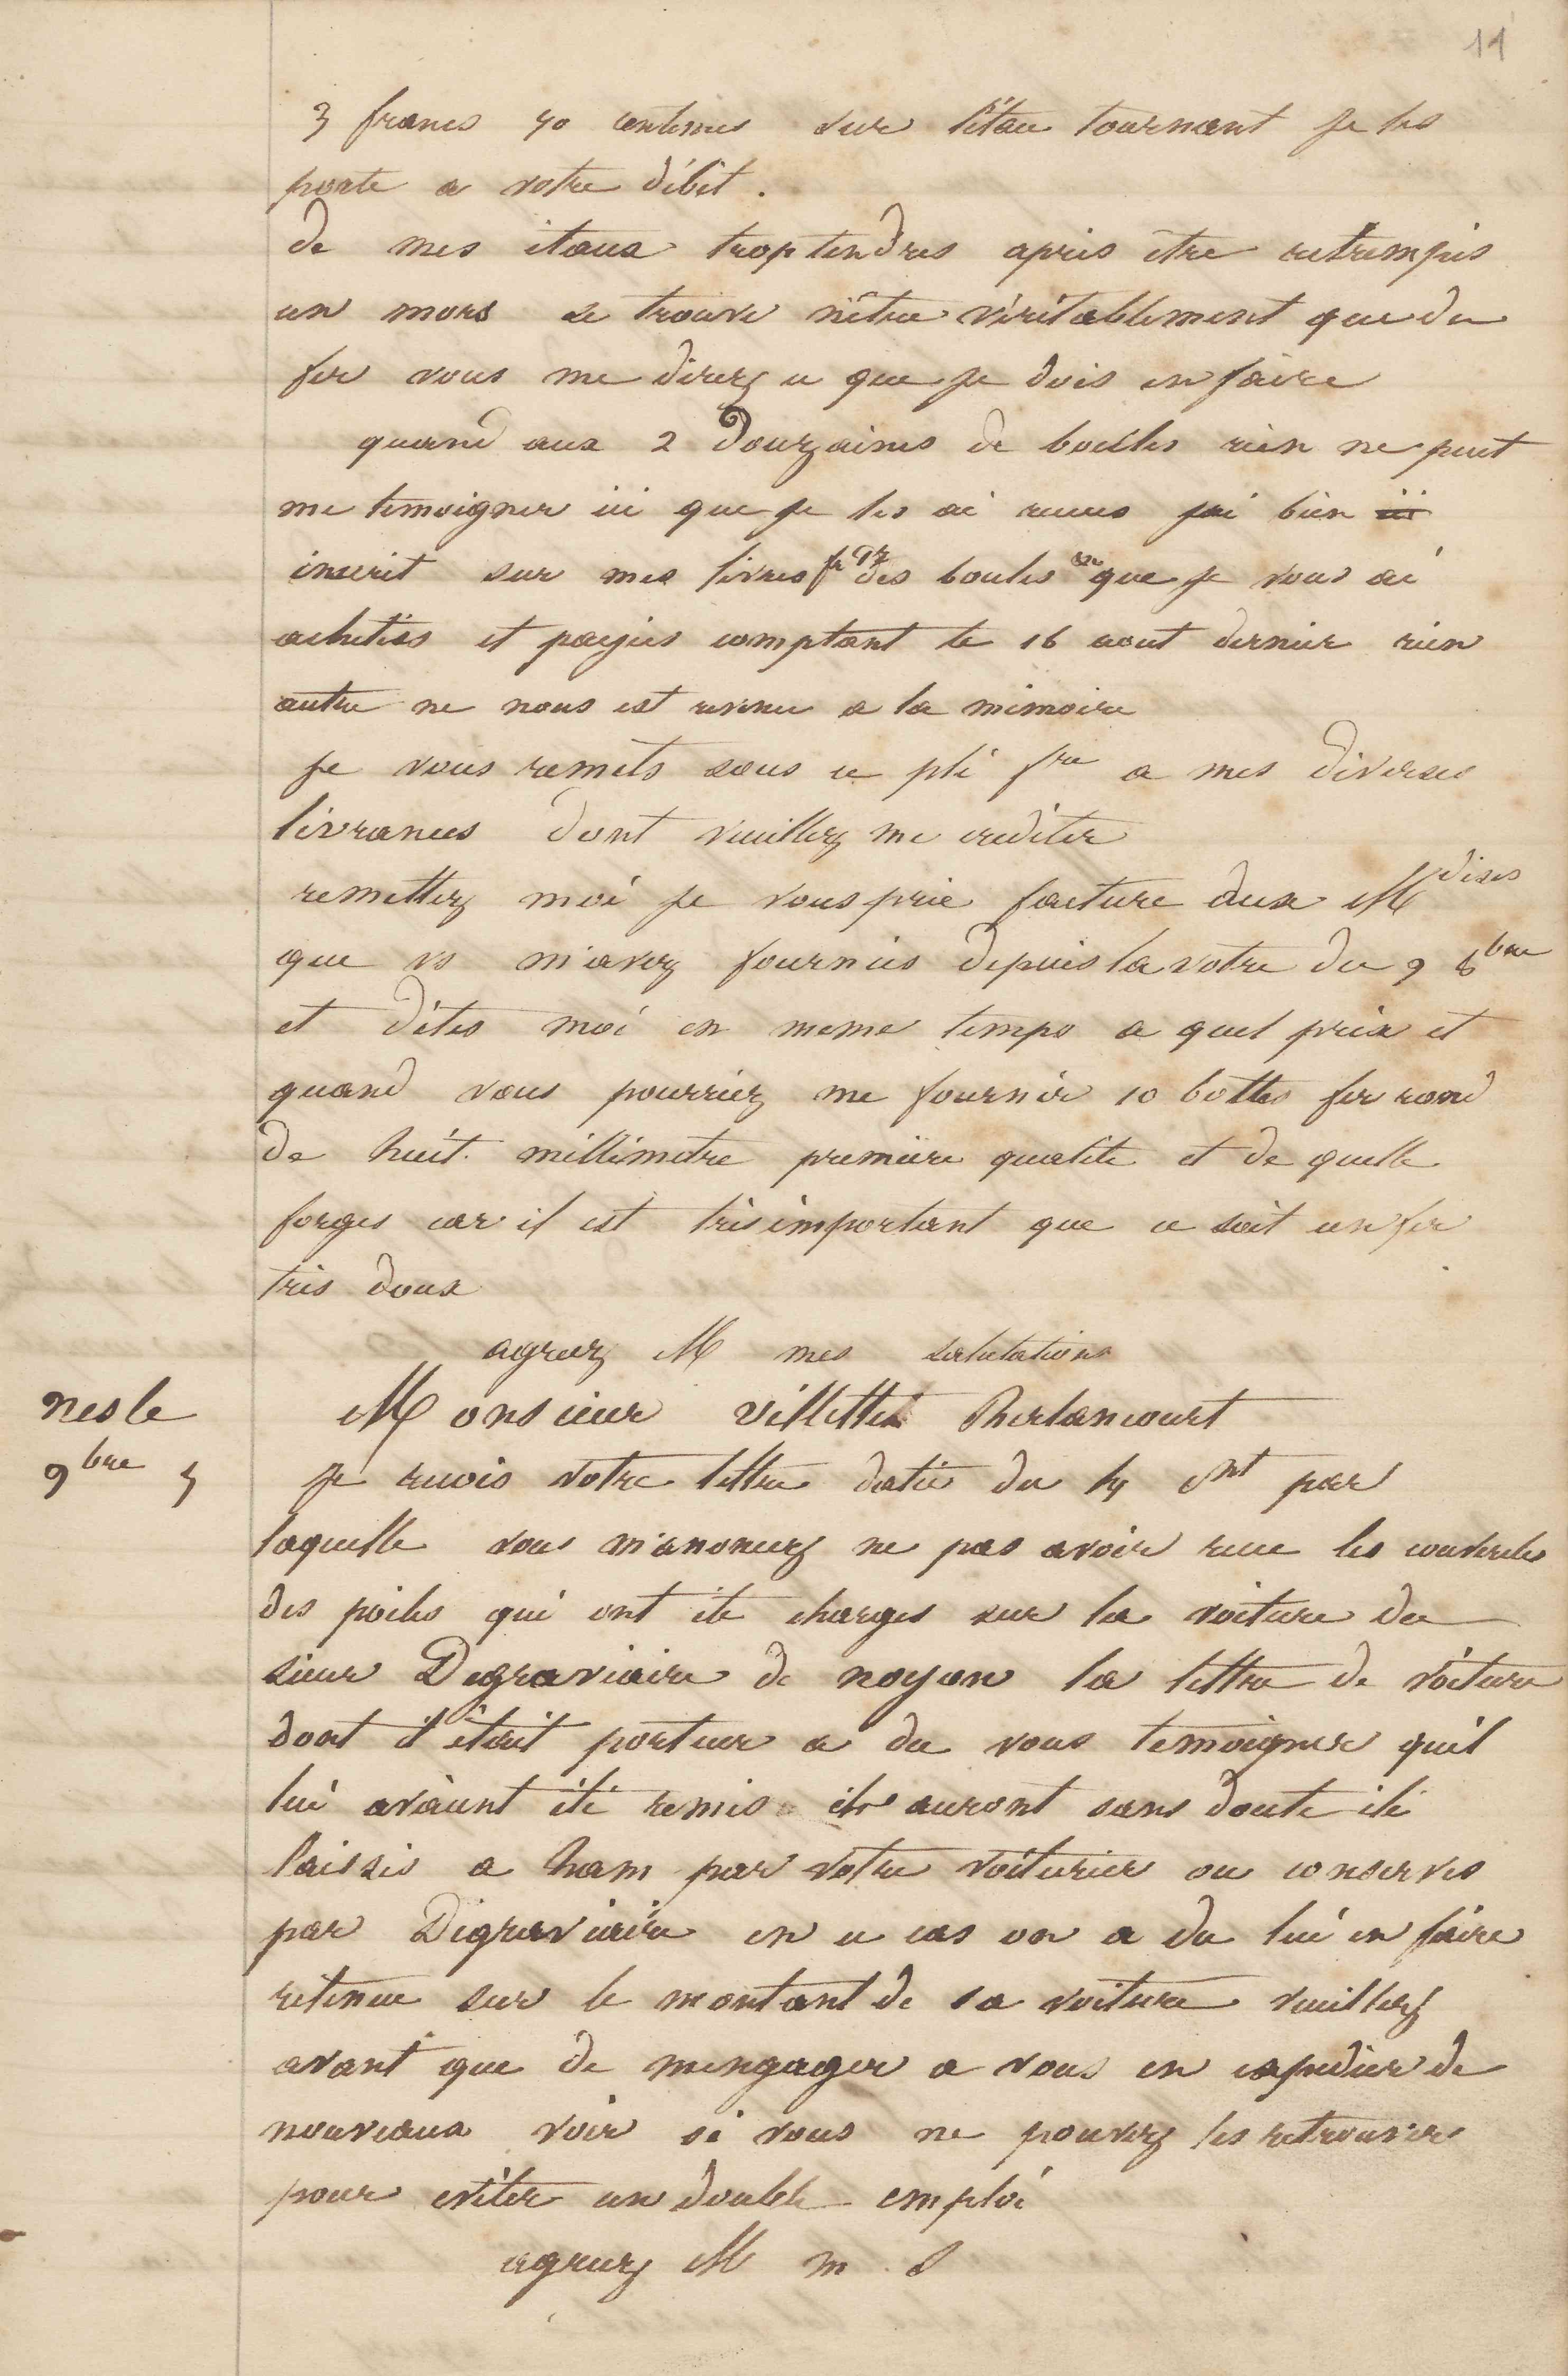 11
3 francs 50 centimes sur l'étau tournant je les
porte a votre débit.
de mes étaux trop tendres après être retrempés
un mors se trouve n'être véritablement que du
fer vous me direz ce que je dois en faire
quand aux 2 Douzaines de boucles rien ne peut
me temoigner ici que je les ai recues jai bien ici
inscrit sur mes livres des boules que je vous ai
achetées et payées comptant le 16 aout dernier rien
autre ne nous est revenu a la mémoire
je vous remets sous ce pli fre a mes diverses
livrances dont veuillez me créditer
remettez moi je vous prie facture aux Mdises
que vs m'avez fournies depuis la votre du 9 8bre
et dites moi en meme temps a quel prix et
quand vous pourriez me fournir 10 bottes fer rond
de huit millimetre première qualité et de quelle
forges car il est très important que ce soit un fer
très doux
agreez M mes salutations
nesle
Monsieur villette Berlancourt
9bre 5
je recois votre lettre datée du 4 cnt par
laquelle vous m'anoncez ne pas avoir recu les couvercles
des poiles qui ont été chargés sur la voiture du
sieur Degraviaire de noyon la lettre de voiture
dont il était porteur a du vous temoigner qu'il
lui avaient été remis ils auront sans doute été
laissés a ham par votre voiturier ou conservés
par Dégraviaire en ce cas on a du lui en faire
retenue sur le montant de sa voiture veuillez
avant que de mengager a vous en expedier de
nouveaux voir si vous ne pouvez les retrouver
pour eviter un double emploi
agreez M m S